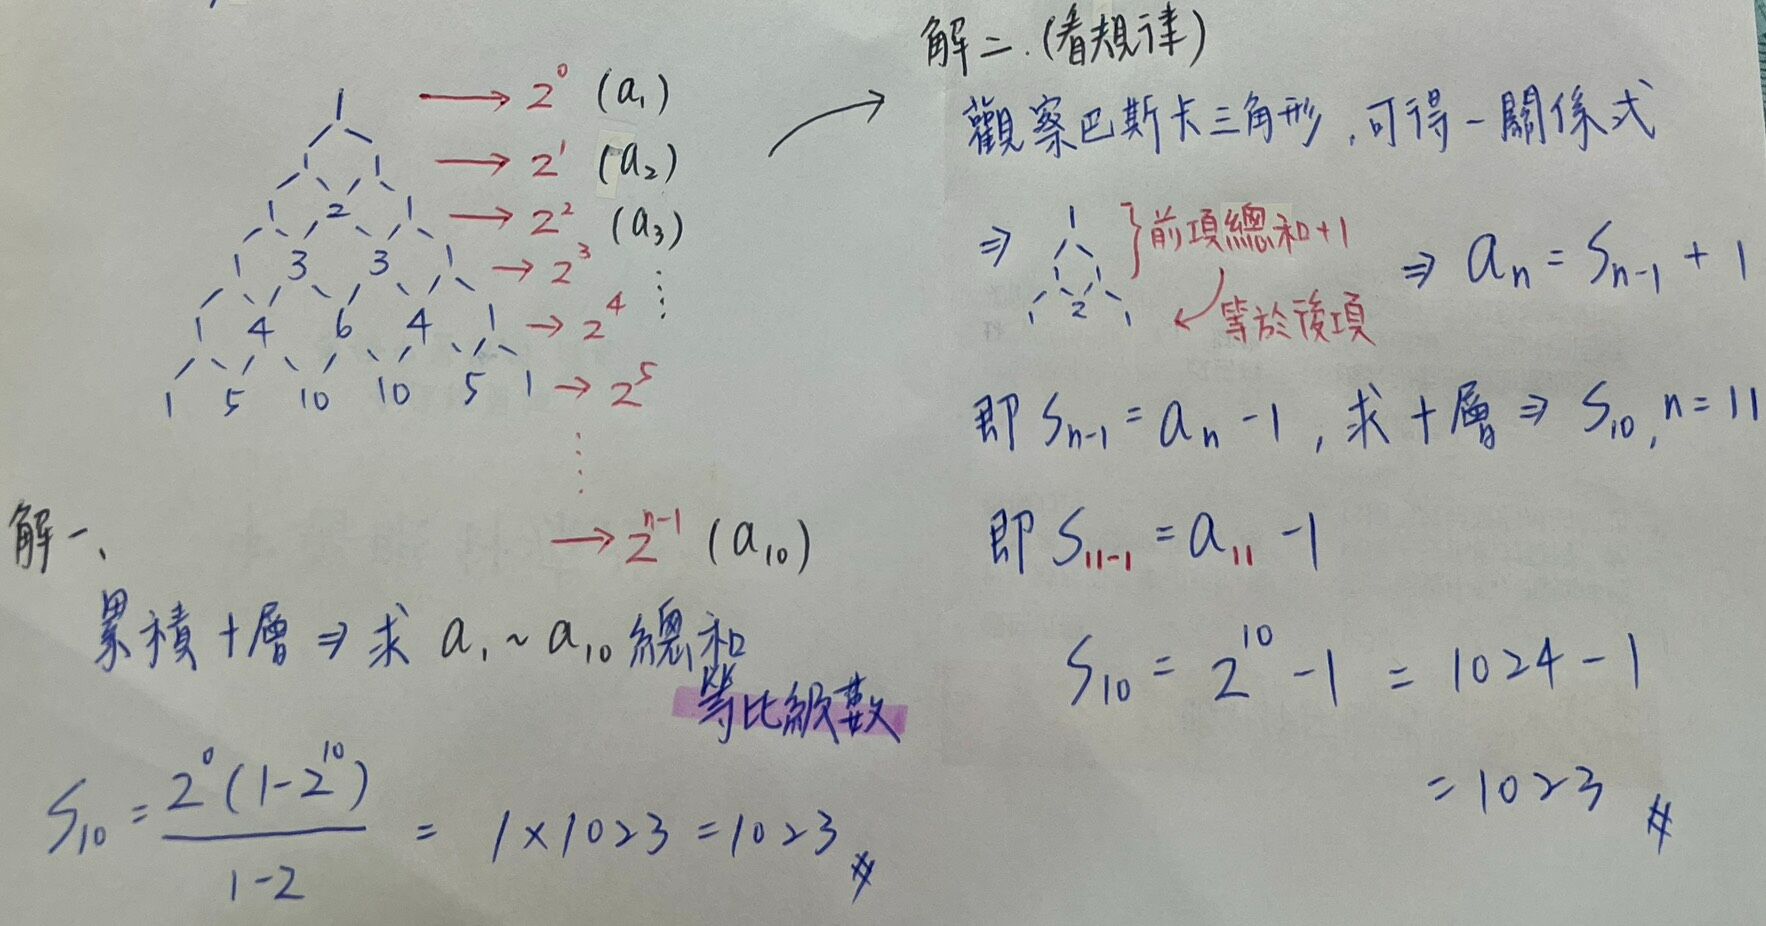 1 → 2⁰ (a₁)
1 1 → 2¹ (a₂)
1 2 1 → 2² (a₃)
1 3 3 1 → 2³ ⋮
1 4 6 4 1 → 2⁴
1 5 10 10 5 1 → 2⁵
⋮
→ 2ⁿ⁻¹ (a₁₀)
解一、
累積十層 ⇒ 求 a₁ ~ a₁₀ 總和
等比級數
S₁₀ = 2⁰(1-2¹⁰) / 1-2 = 1×1023 = 1023 #
解二.(看規律)
觀察巴斯卡三角形,可得一關係式
⇒ 1 1 1 1 2 1 } 前項總和+1 ⇒ aₙ = Sₙ₋₁ + 1
等於後項
即 Sₙ₋₁ = aₙ - 1 , 求十層 ⇒ S₁₀, n = 11
即 S₁₁₋₁ = a₁₁ - 1
S₁₀ = 2¹⁰ - 1 = 1024 - 1
= 1023 #